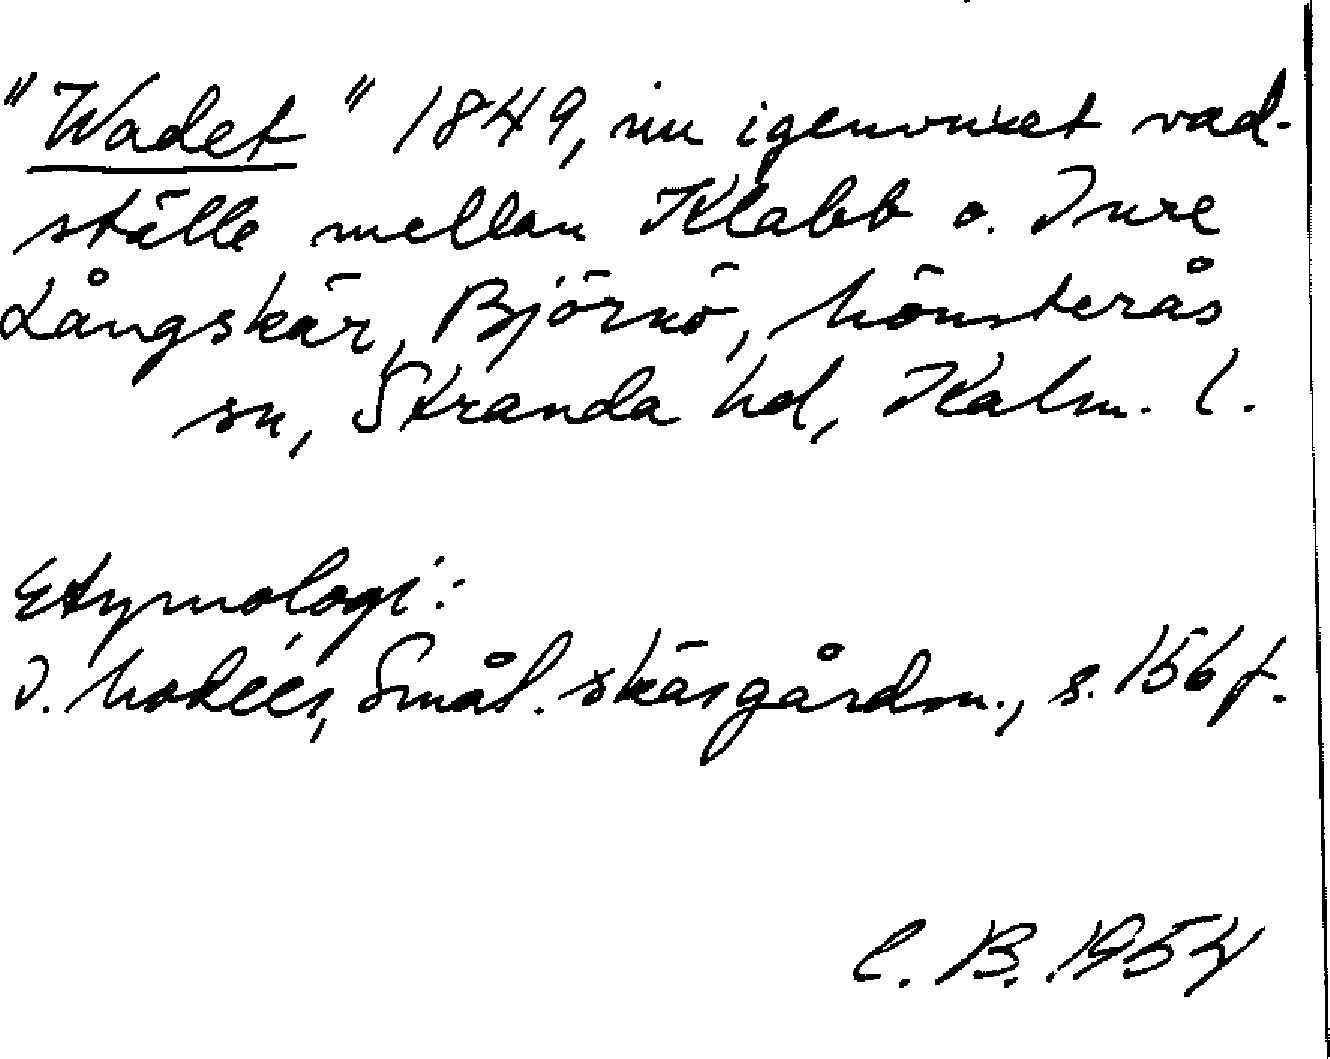 "Wadet" 1849, nu igenvuxet vad-
ställe mellan Klabb o. Inre
Långskär, Björnö, Mönsterås
sn, Stranda hd, Kalm. l.
Etymologi:
I. Modéer, Smål. skärgårdsn., s. 156 f.
C. B. 1954